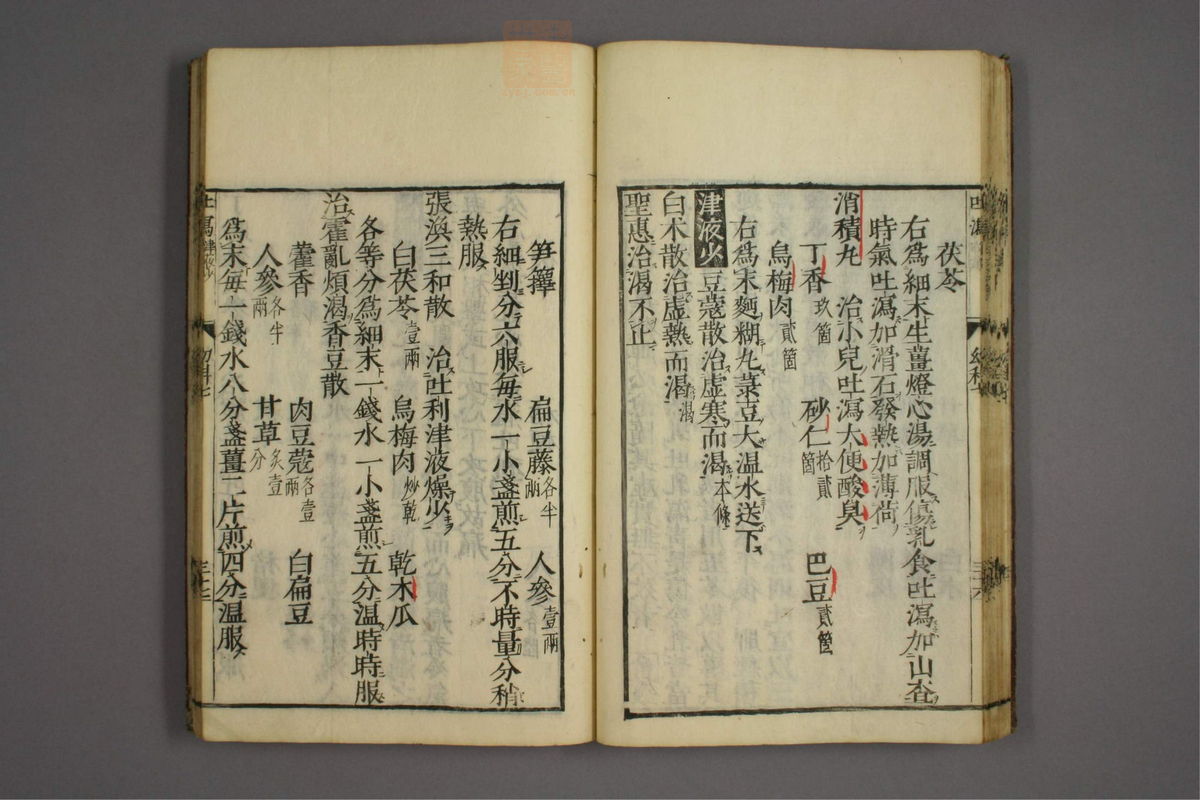 茯苓
右爲細末生薑燈心湯調服傷乳食吐瀉加山查
時氣吐瀉加滑石發熱加薄荷
消積丸 治小兒吐瀉大便酸臭
丁香玖箇 砂仁拾貳箇 巴豆貳箇
烏梅肉貳箇
右爲末麪糊丸菉豆大温水送下
津液少 豆蔻散治虚寒而渴本條
白术散治虚熱而渴渴
聖惠治渴不止
笋籜 扁豆藤各半兩 人參壹兩
右細剉分六服每水一小盞煎五分不時量分稍
熱服
張渙三和散 治吐利津液燥少
白茯苓壹兩 烏梅肉炒乾 乾木瓜
各等分爲細末一錢水一小盞煎五分温時時服
治霍亂煩渴香豆散
藿香 肉豆蔻各壹兩 白扁豆
人參各半兩 甘草炙壹分
爲末每一錢水八分盞薑二片煎四分温服
吐瀉
幼科七